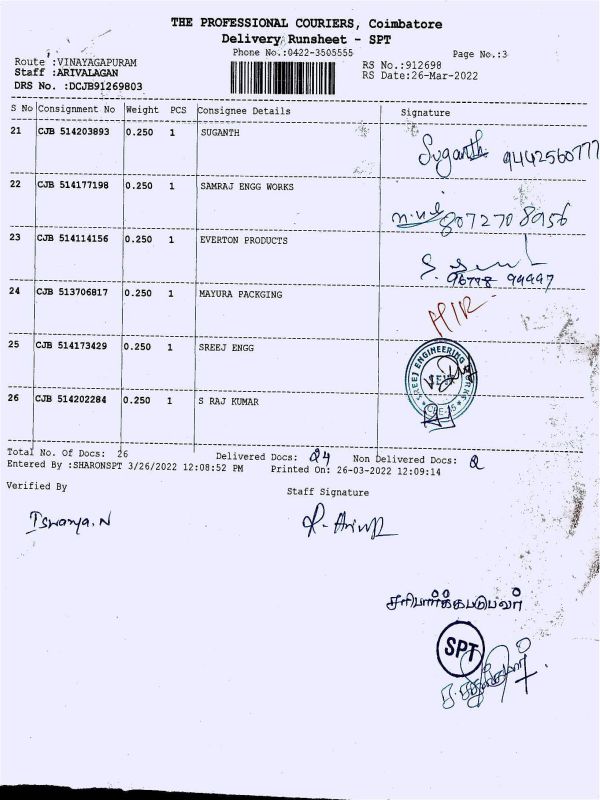 THE PROFESSIONAL COURIERS, Coimbatore
Delivery Runsheet - SPT
Phone No.:0422-3505555
Page No.:3
Route :VINAYAGAPURAM
RS No.:912698
Staff :ARIVALAGAN
RS Date:26-Mar-2022
DRS No. :DCJB91269803
S No Consignment No Weight PCS Consignee Details Signature
21 CJB 514203893 0.250 1 SUGANTH Suganth 9442560777
22 CJB 514177198 0.250 1 SAMRAJ ENGG WORKS 8072708956
23 CJB 514114156 0.250 1 EVERTON PRODUCTS
24 CJB 513706817 0.250 1 MAYURA PACKGING
25 CJB 514173429 0.250 1 SREEJ ENGG SREEJ ENGINEERING
26 CJB 514202284 0.250 1 S RAJ KUMAR
Total No. Of Docs: 26 Delivered Docs: 24 Non Delivered Docs: 2
Entered By :SHARONSPT 3/26/2022 12:08:52 PM Printed On: 26-03-2022 12:09:14
Verified By Staff Signature
Iswarya.N
சரிபார்க்கபடுபவர்
SPT